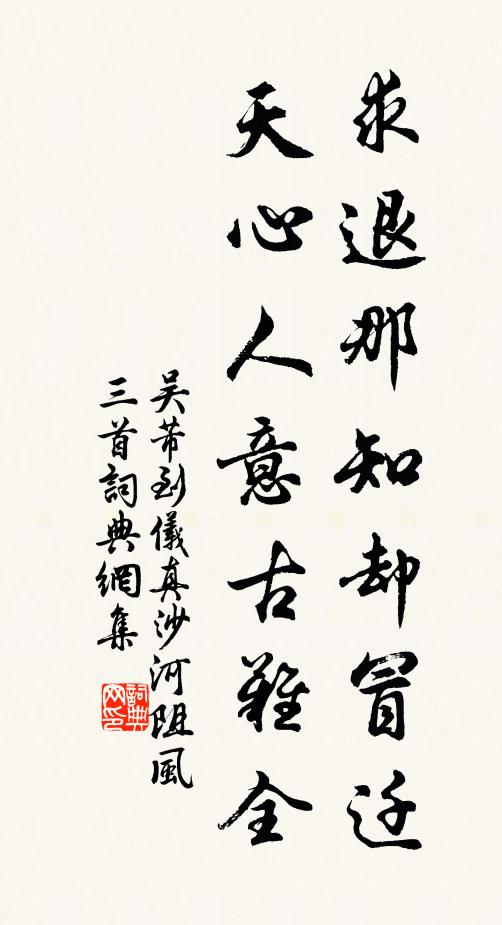 求退那知却冒迁
天心人意古難全
吴芾到儀真沙河阻風
三首詞典網集
詞典网印